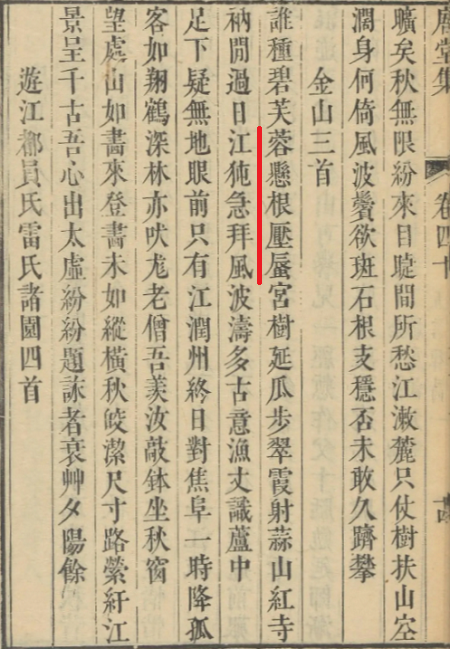 唐堂集 卷四十
曠矣秋無限紛來目睫間所愁江漱麓只仗樹扶山空
濶身何倚風波鬢欲斑石根支穩否未敢久躋攀
金山三首
誰種碧芙蓉懸根壓蜃宮樹延瓜步翠霞射蒜山紅寺
衲閒過日江㹠急拜風波濤多古意漁丈識蘆中
足下疑無地眼前只有江潤州終日對焦阜一時降孤
客如翔鶴深林亦吠尨老僧吾羨汝敲鉢坐秋窗
望處山如畫來登畫未如縱橫秋皎潔尺寸路縈紆江
景呈千古吾心出太虛紛紛題詠者衰艸夕陽餘
遊江都員氏雷氏諸園四首